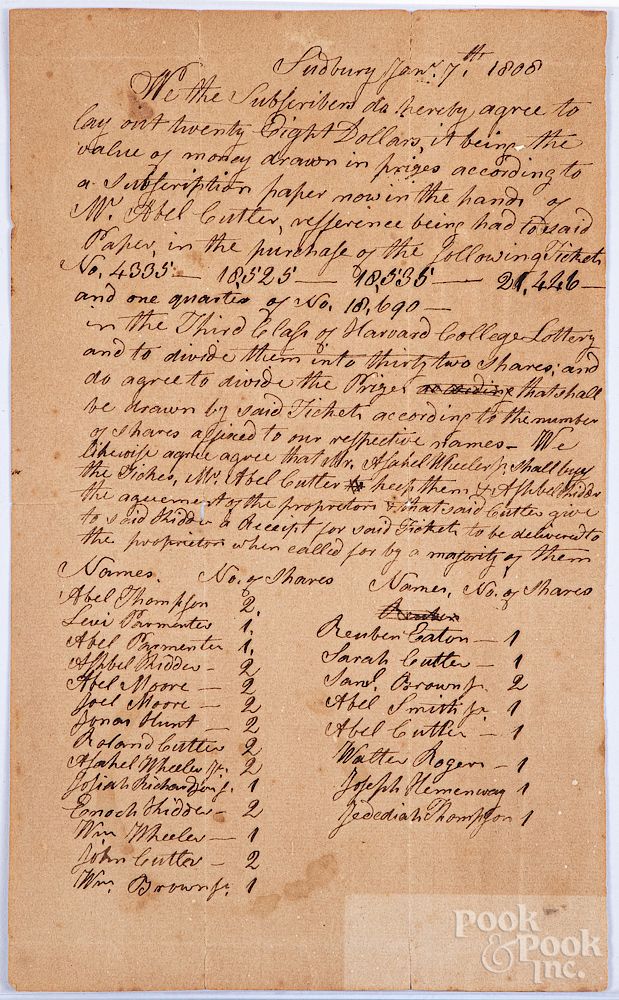 Sudbury Jany. 7th. 1808
We the Subscribers do hereby agree to
lay out twenty Eight Dollars, it being the
value of money drawn in prizes according to
a Subscription paper now in the hands of
Mr. Abel Cutler, refference being had to said
Paper, in the purchase of the following Tickets
No. 4335 — 18,525 — 18,535 — 21,446 —
and one quarter of No. 18,690 —
in the Third Class of Harvard College Lottery
and to divide them into thirty two Shares; and
do agree to divide the Prizes according that shall
be drawn by said Tickets according to the number
of shares affixed to our respective names — We
likewise agree agree that Mr. Asahel Wheeler Jr. shall buy
the Tickes, Mr. Abel Cutler keep them & Ashbel Kidder
the agreement of the proprietors & that said Cutler give
to said Kidder a Receipt for said Tickets to be delivered to
the proprietors when called for by a majority of them
Names. No. of Shares
Abel Thompson 2.
Levi Parmenter 1.
Abel Parmenter 1.
Ashbel Kidder — 2
Abel Moore — 2
Joel Moore — 2
Jonas Hunt — 2
Roland Cutler 2
Asahel Wheeler Jr. 2
Josiah Richardson Jr. 1
Enoch Kidder — 2
Wm Wheeler — 1
John Cutler — 2
Wm. Brown Jr. 1
Names, No. of Shares
Reuben
Reuben Eaton — 1
Sarah Cutler — 1
Saml. Brown Jr. 2
Abel Smith Jr. 1
Abel Cutler — 1
Walter Rogers — 1
Joseph Hemenway 1
Jedediah Thompson 1
Pook
& Pook
Inc.